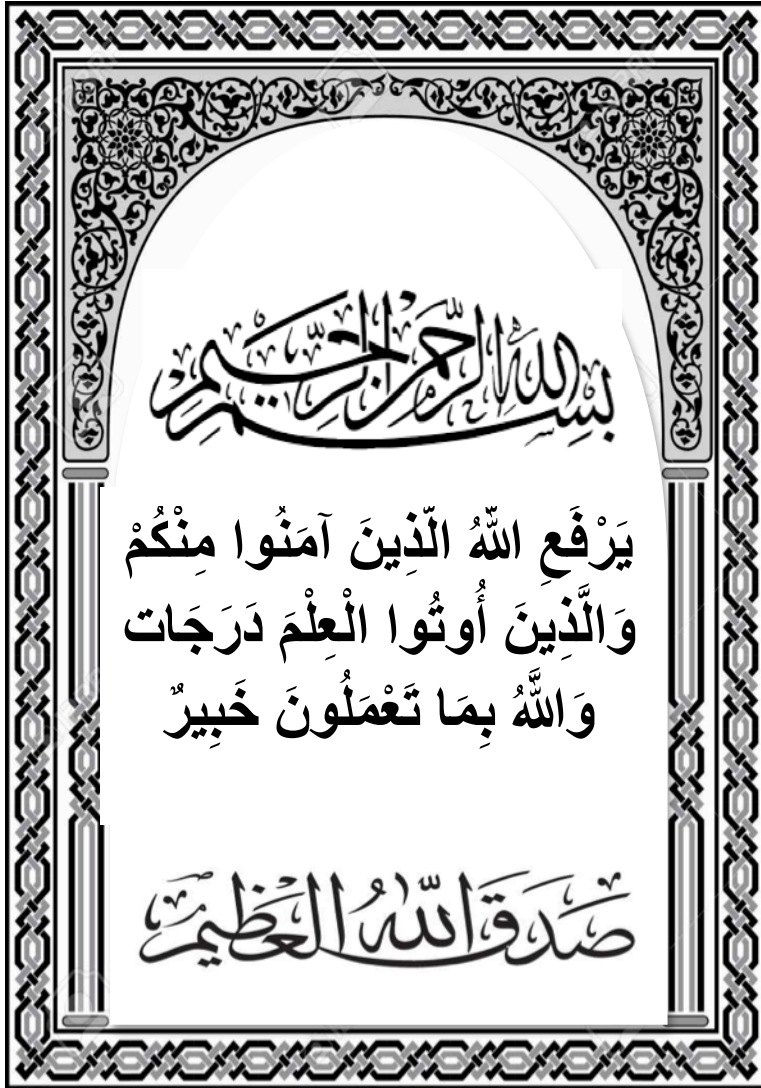 بسم الله الرحمن الرحيم
يَرْفَعِ اللهُ الّذِينَ آمَنُوا مِنْكُمْ
وَالَّذِينَ أُوتُوا الْعِلْمَ دَرَجَات
وَاللَّهُ بِمَا تَعْمَلُونَ خَبِيرٌ
صَدَقَ اللهُ العَظيم